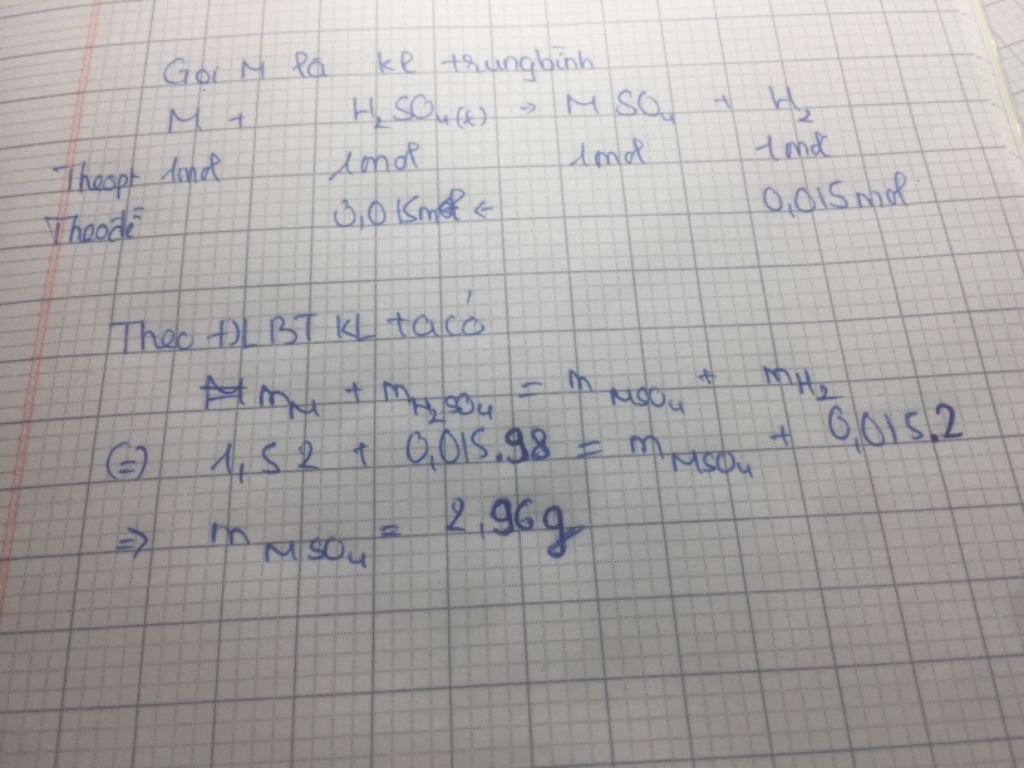 Gọi M là kl trung bình
M + H₂SO₄(l) → MSO₄ + H₂
Theo pt 1mol 1mol 1mol 1mol
Theo đề 0,015mol ← 0,015mol
Theo ĐLBTKL ta có
m_M + m_H₂SO₄ = m_MSO₄ + m_H₂
(=) 1,52 + 0,015.98 = m_MSO₄ + 0,015.2
⇒ m_MSO₄ = 2,96g